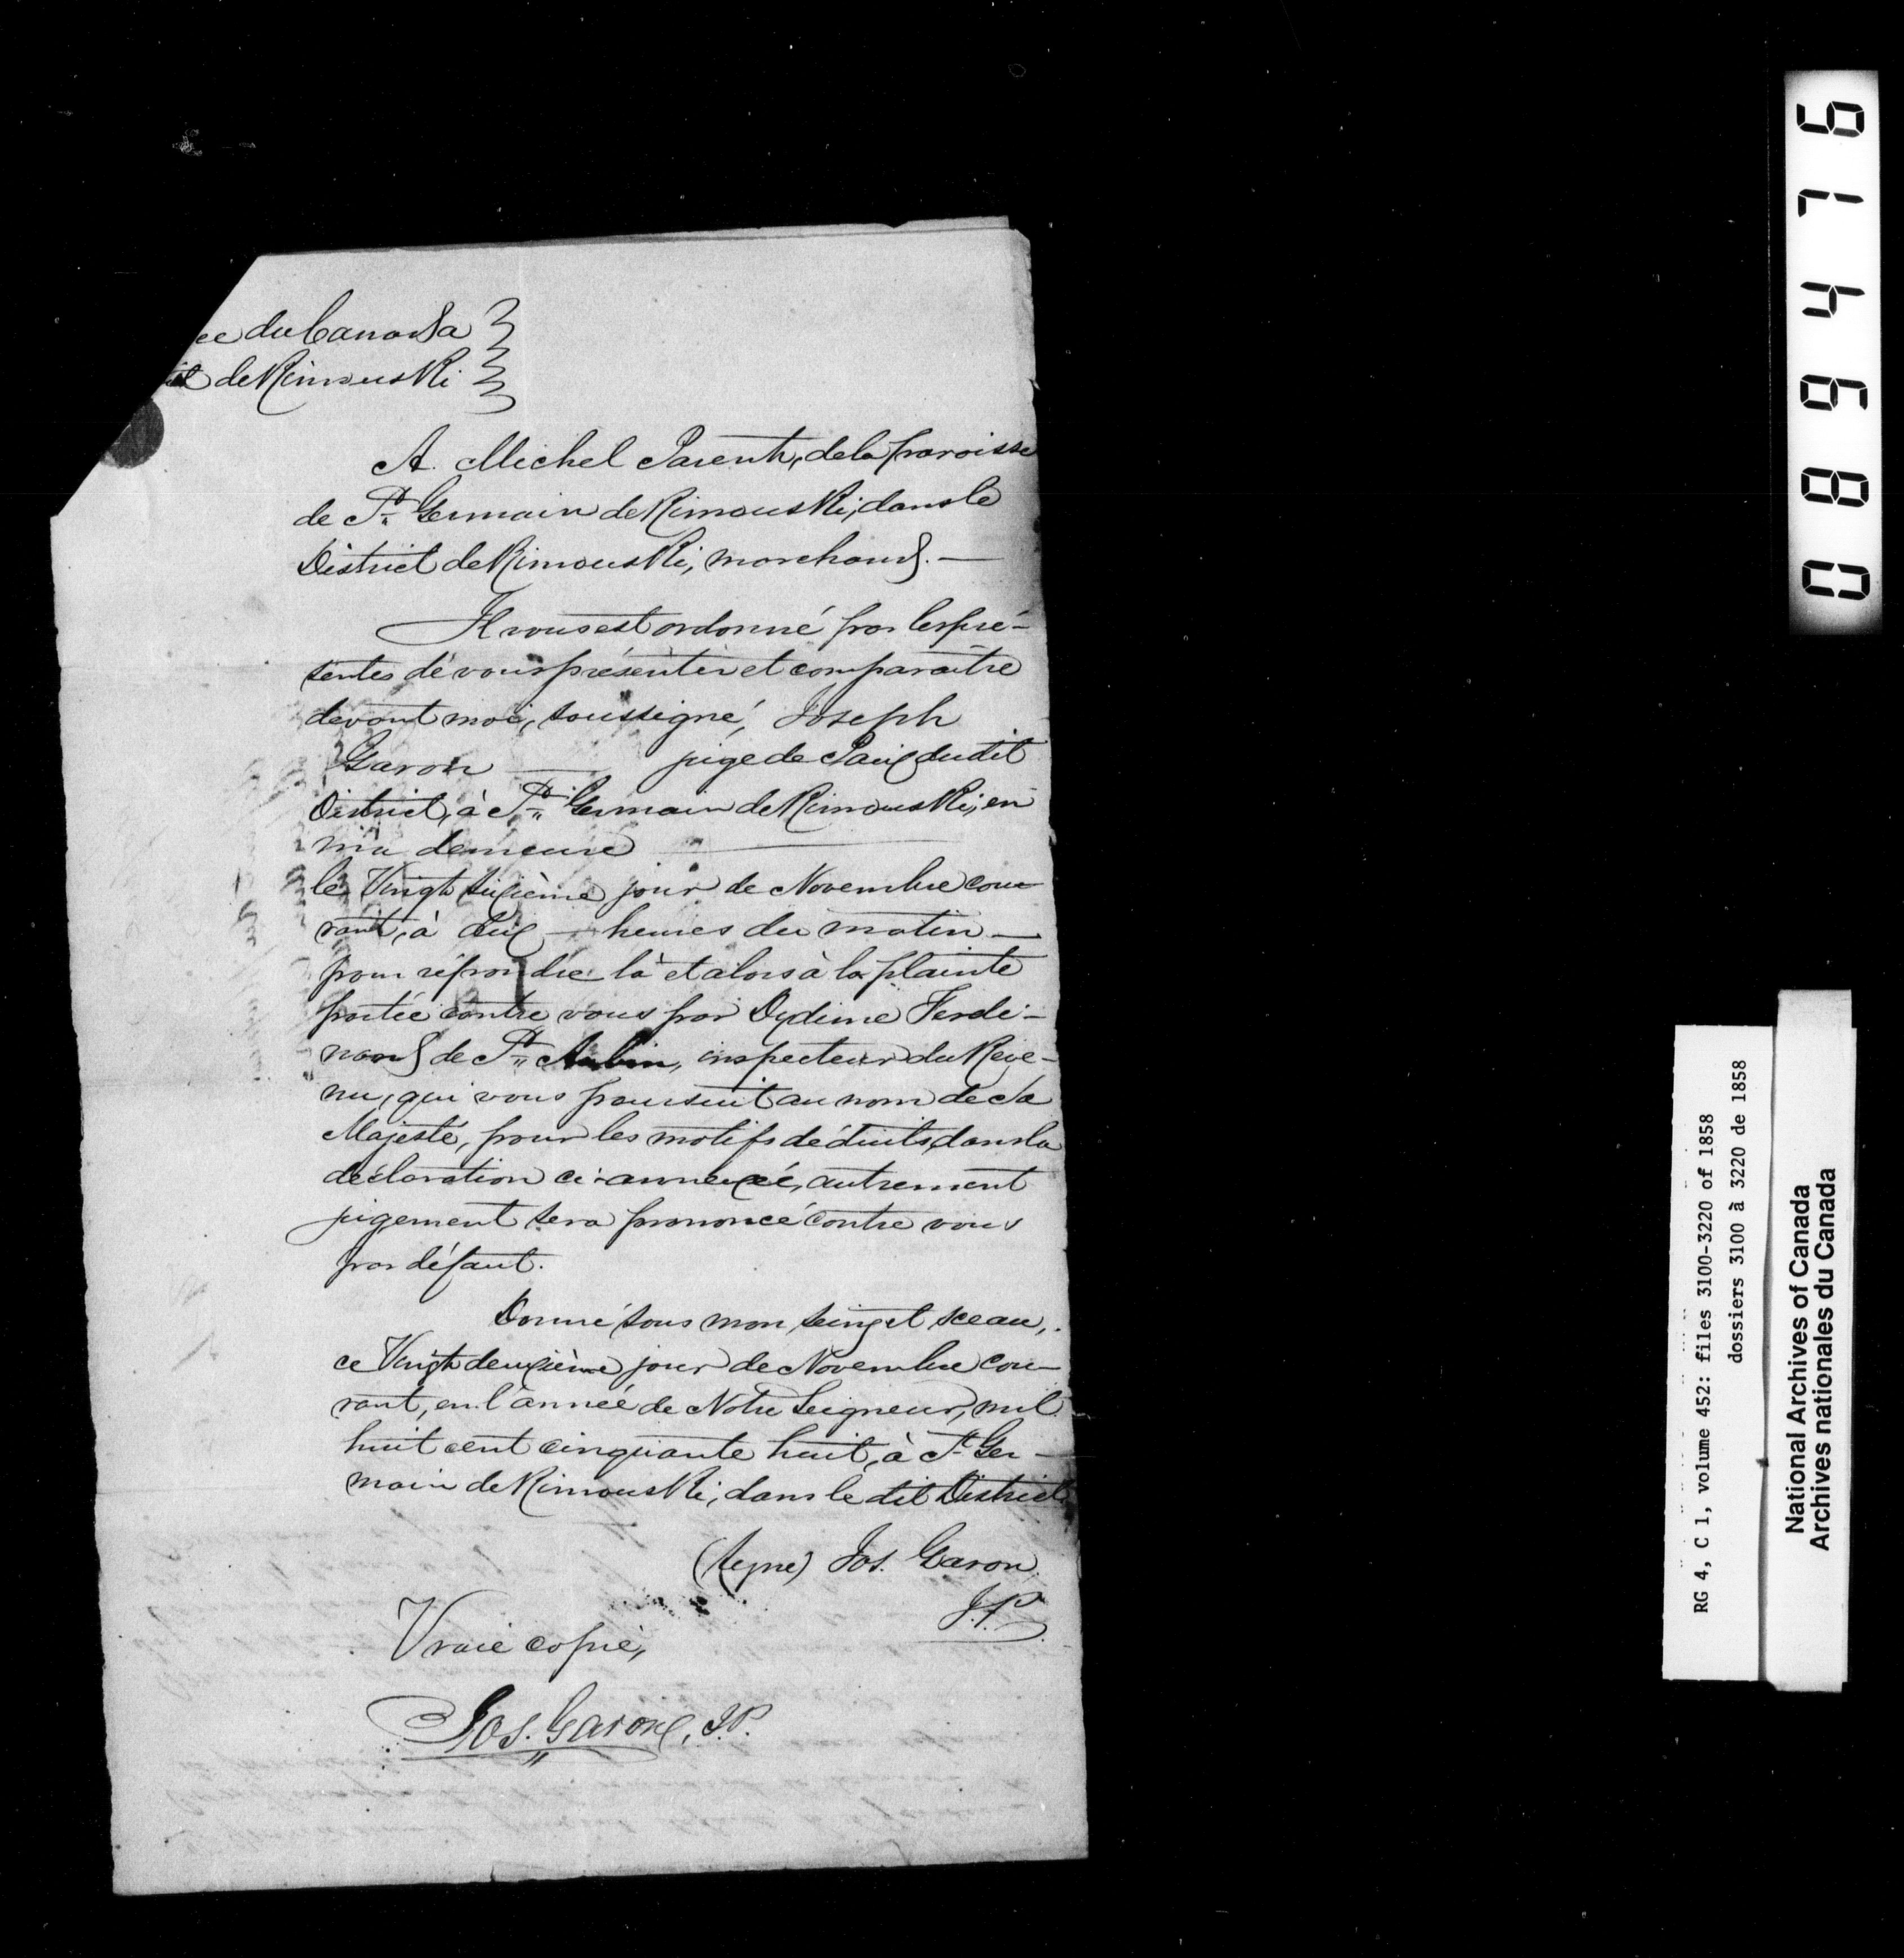 ce du Canada
ict de Rimouski
A. Michel Parent, de la paroisse
de St. Germain de Rimouski, dans le
District de Rimouski, marchand. —
Il vous est ordonné par les pré-
sentes de vous présenter et comparaitre
devant moi, soussigné, Joseph
Garon — juge de Paix du dit
District, à St. Germain de Rimouski, en
ma demeure —
le Vingt sixième jour de Novembre cou-
rant, à dix — heures du matin —
pour répondre là et alors à la plainte
portée contre vous par Dydime Ferdi-
nand de St. Aubin, inspecteur du Reve-
nu, qui vous poursuit au nom de Sa
Majesté, pour les motifs déduits dans la
déclaration ci-annexée, autrement
jugement sera prononcé contre vous
par défaut.
Donné sous mon seing et sceau,
ce Vingt deuxième jour de Novembre cou-
rant, en l'année de Notre Seigneur, mil
huit cent cinquante huit, à St. Ger-
main de Rimouski, dans le dit District.
(signé) Jos. Garon
J.P.
Vraie copie,
Jos. Garon, J.P.
089476
RG 4, C 1, volume 452: files 3100-3220 of 1858
dossiers 3100 à 3220 de 1858
National Archives of Canada
Archives nationales du Canada